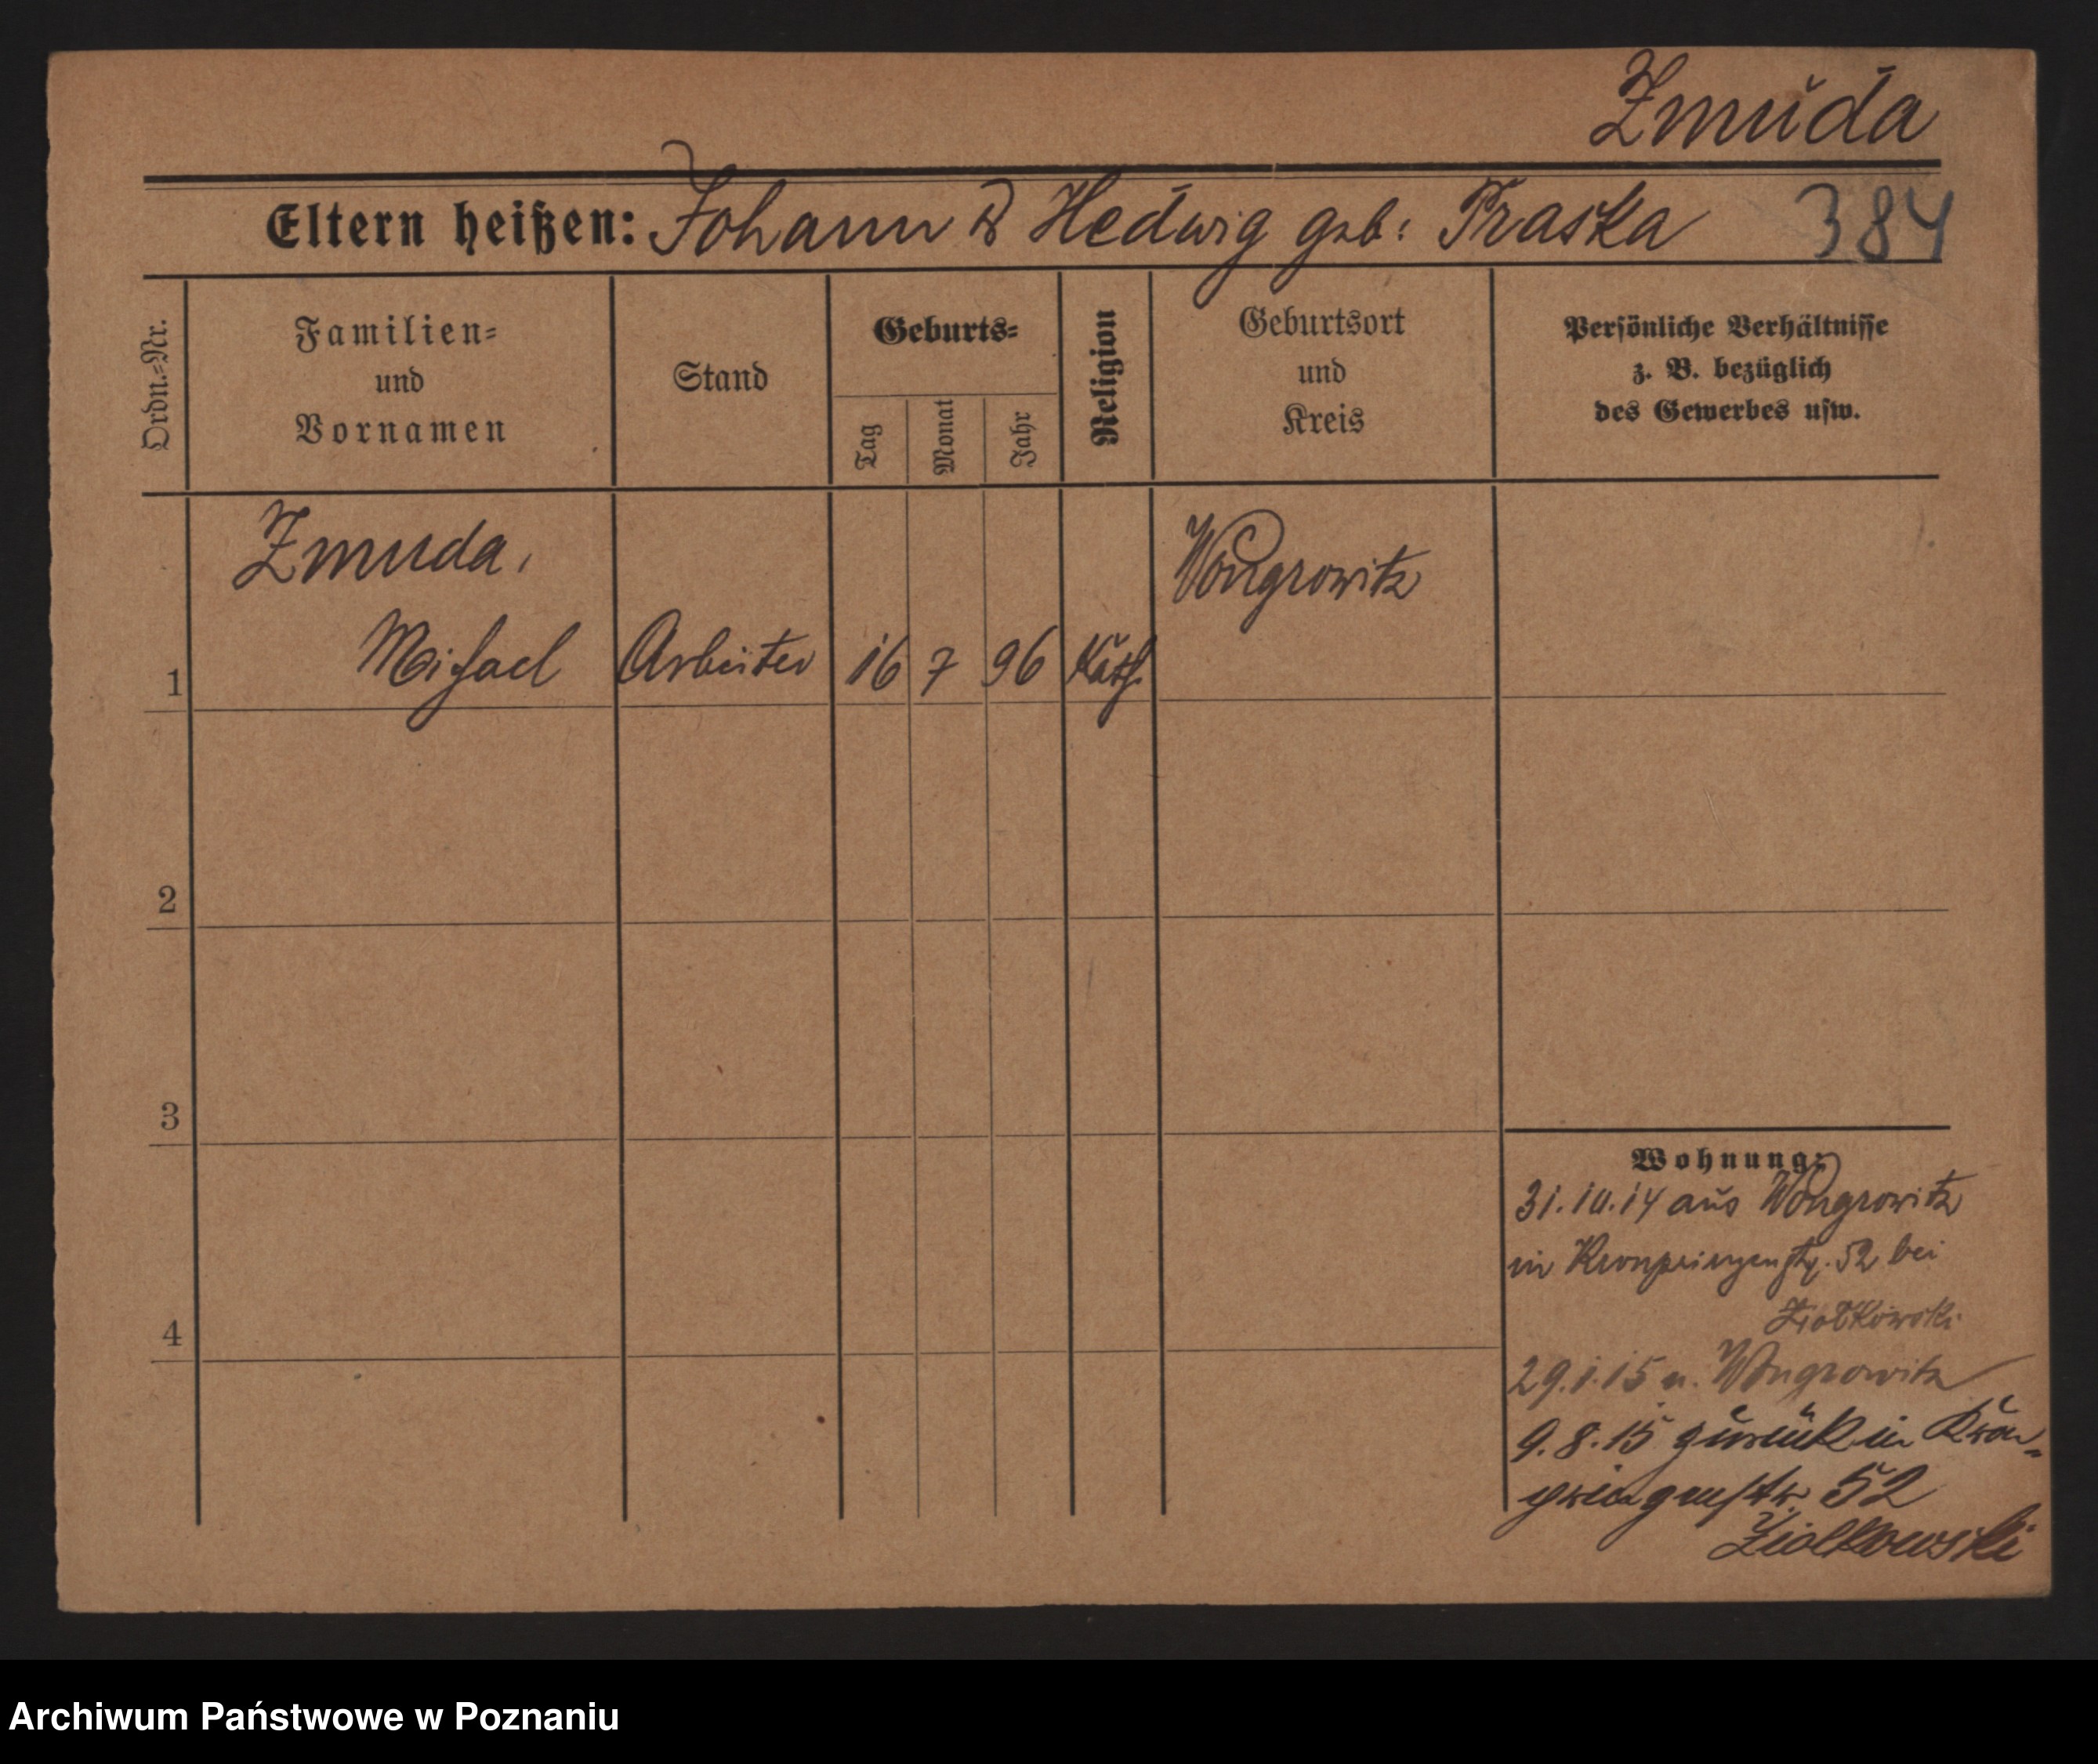 Zmuda
Eltern heißen: Johann & Hedwig geb: Praska 384
Ordn.=Nr.
Familien=
und
Vornamen
Stand
Geburts=
Tag
Monat
Jahr
Religion
Geburtsort
und
Kreis
Persönliche Verhältnisse
z. B. bezüglich
des Gewerbes usw.
Zmuda,
Wongrowitz
1 Michael Arbeiter 16 7 96 Kath.
2
3
Wohnung:
31.10.14 aus Wongrowitz
in Kronprinzenstr. 52 bei
Ziolkowski
4
29.1.15 n. Wongrowitz
9.8.15 zurück in Kron=
prinzenstr. 52
Ziolkowski
Archiwum Państwowe w Poznaniu